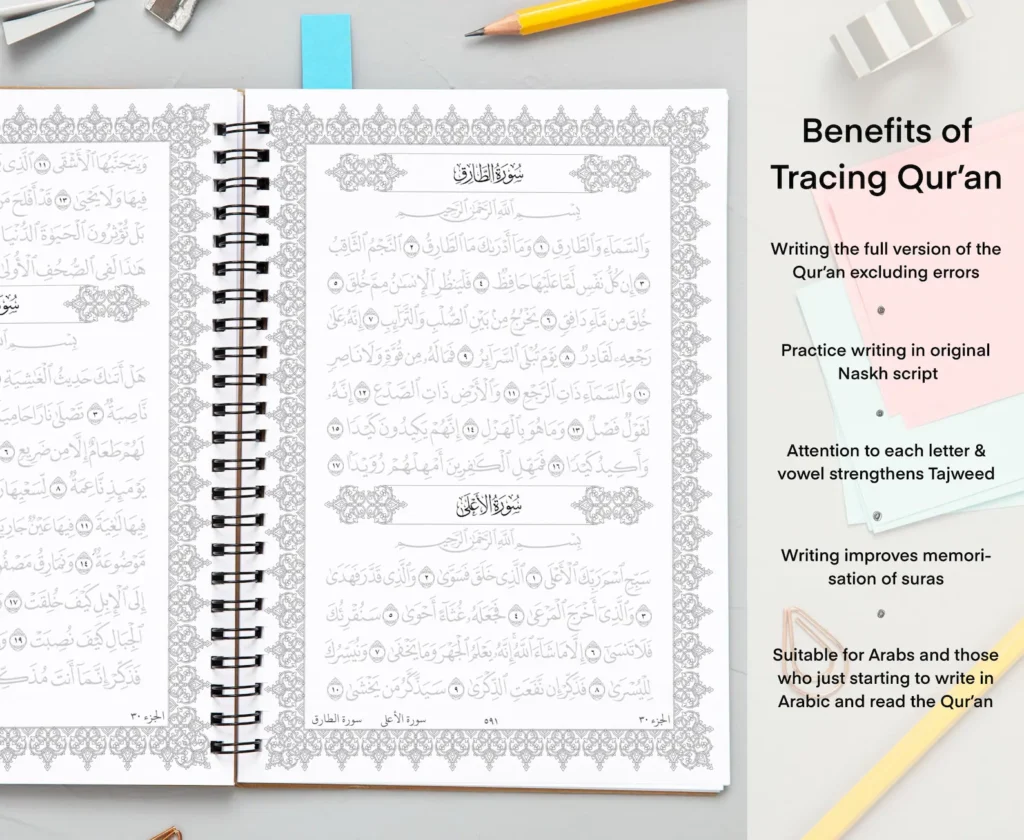 سُورَةُ الطَّارِقِ
بِسْمِ اللَّهِ الرَّحْمَٰنِ الرَّحِيمِ
وَالسَّمَاءِ وَالطَّارِقِ ١ وَمَا أَدْرَاكَ مَا الطَّارِقُ ٢ النَّجْمُ الثَّاقِبُ
٣ إِن كُلُّ نَفْسٍ لَّمَّا عَلَيْهَا حَافِظٌ ٤ فَلْيَنظُرِ الْإِنسَٰنُ مِمَّ خُلِقَ ٥
خُلِقَ مِن مَّاءٍ دَافِقٍ ٦ يَخْرُجُ مِنۢ بَيْنِ الصُّلْبِ وَالتَّرَائِبِ ٧ إِنَّهُ عَلَىٰ
رَجْعِهِ لَقَادِرٌ ٨ يَوْمَ تُبْلَى السَّرَائِرُ ٩ فَمَا لَهُ مِن قُوَّةٍ وَلَا نَاصِرٍ
١٠ وَالسَّمَاءِ ذَاتِ الرَّجْعِ ١١ وَالْأَرْضِ ذَاتِ الصَّدْعِ ١٢ إِنَّهُ
لَقَوْلٌ فَصْلٌ ١٣ وَمَا هُوَ بِالْهَزْلِ ١٤ إِنَّهُمْ يَكِيدُونَ كَيْدًا ١٥
وَأَكِيدُ كَيْدًا ١٦ فَمَهِّلِ الْكَٰفِرِينَ أَمْهِلْهُمْ رُوَيْدًا ١٧
سُورَةُ الْأَعْلَىٰ
بِسْمِ اللَّهِ الرَّحْمَٰنِ الرَّحِيمِ
سَبِّحِ اسْمَ رَبِّكَ الْأَعْلَى ١ الَّذِي خَلَقَ فَسَوَّىٰ ٢ وَالَّذِي قَدَّرَ فَهَدَىٰ
٣ وَالَّذِي أَخْرَجَ الْمَرْعَىٰ ٤ فَجَعَلَهُ غُثَاءً أَحْوَىٰ ٥ سَنُقْرِئُكَ
فَلَا تَنسَىٰ ٦ إِلَّا مَا شَاءَ اللَّهُ إِنَّهُ يَعْلَمُ الْجَهْرَ وَمَا يَخْفَىٰ ٧ وَنُيَسِّرُكَ
لِلْيُسْرَىٰ ٨ فَذَكِّرْ إِن نَّفَعَتِ الذِّكْرَىٰ ٩ سَيَذَّكَّرُ مَن يَخْشَىٰ ١٠
الجزء ٣٠ ٥٩١ سورة الأعلى سورة الطارق
وَيَتَجَنَّبُهَا الْأَشْقَى ١١ الَّذِي
فِيهَا وَلَا يَحْيَىٰ ١٣ قَدْ أَفْلَحَ مَن
بَلْ تُؤْثِرُونَ الْحَيَوٰةَ الدُّنْيَا
هَٰذَا لَفِي الصُّحُفِ الْأُولَىٰ
بِسْمِ
هَلْ أَتَىٰكَ حَدِيثُ الْغَٰشِيَةِ
نَّاصِبَةٌ ٣ تَصْلَىٰ نَارًا حَامِيَةً
لَهُمْ طَعَامٌ إِلَّا مِن ضَرِيعٍ ٦
يَوْمَئِذٍ نَّاعِمَةٌ ٨ لِّسَعْيِهَا
فِيهَا لَٰغِيَةً ١١ فِيهَا عَيْنٌ جَارِيَةٌ
مَّوْضُوعَةٌ ١٤ وَنَمَارِقُ
إِلَى الْإِبِلِ كَيْفَ خُلِقَتْ ١٧
الْجِبَالِ كَيْفَ نُصِبَتْ ١٩
فَذَكِّرْ إِنَّمَا أَنتَ مُذَكِّرٌ
الجزء ٣٠
Benefits of
Tracing Qur'an
Writing the full version of the
Qur'an excluding errors
Practice writing in original
Naskh script
Attention to each letter &
vowel strengthens Tajweed
Writing improves memori-
sation of suras
Suitable for Arabs and those
who just starting to write in
Arabic and read the Qur'an